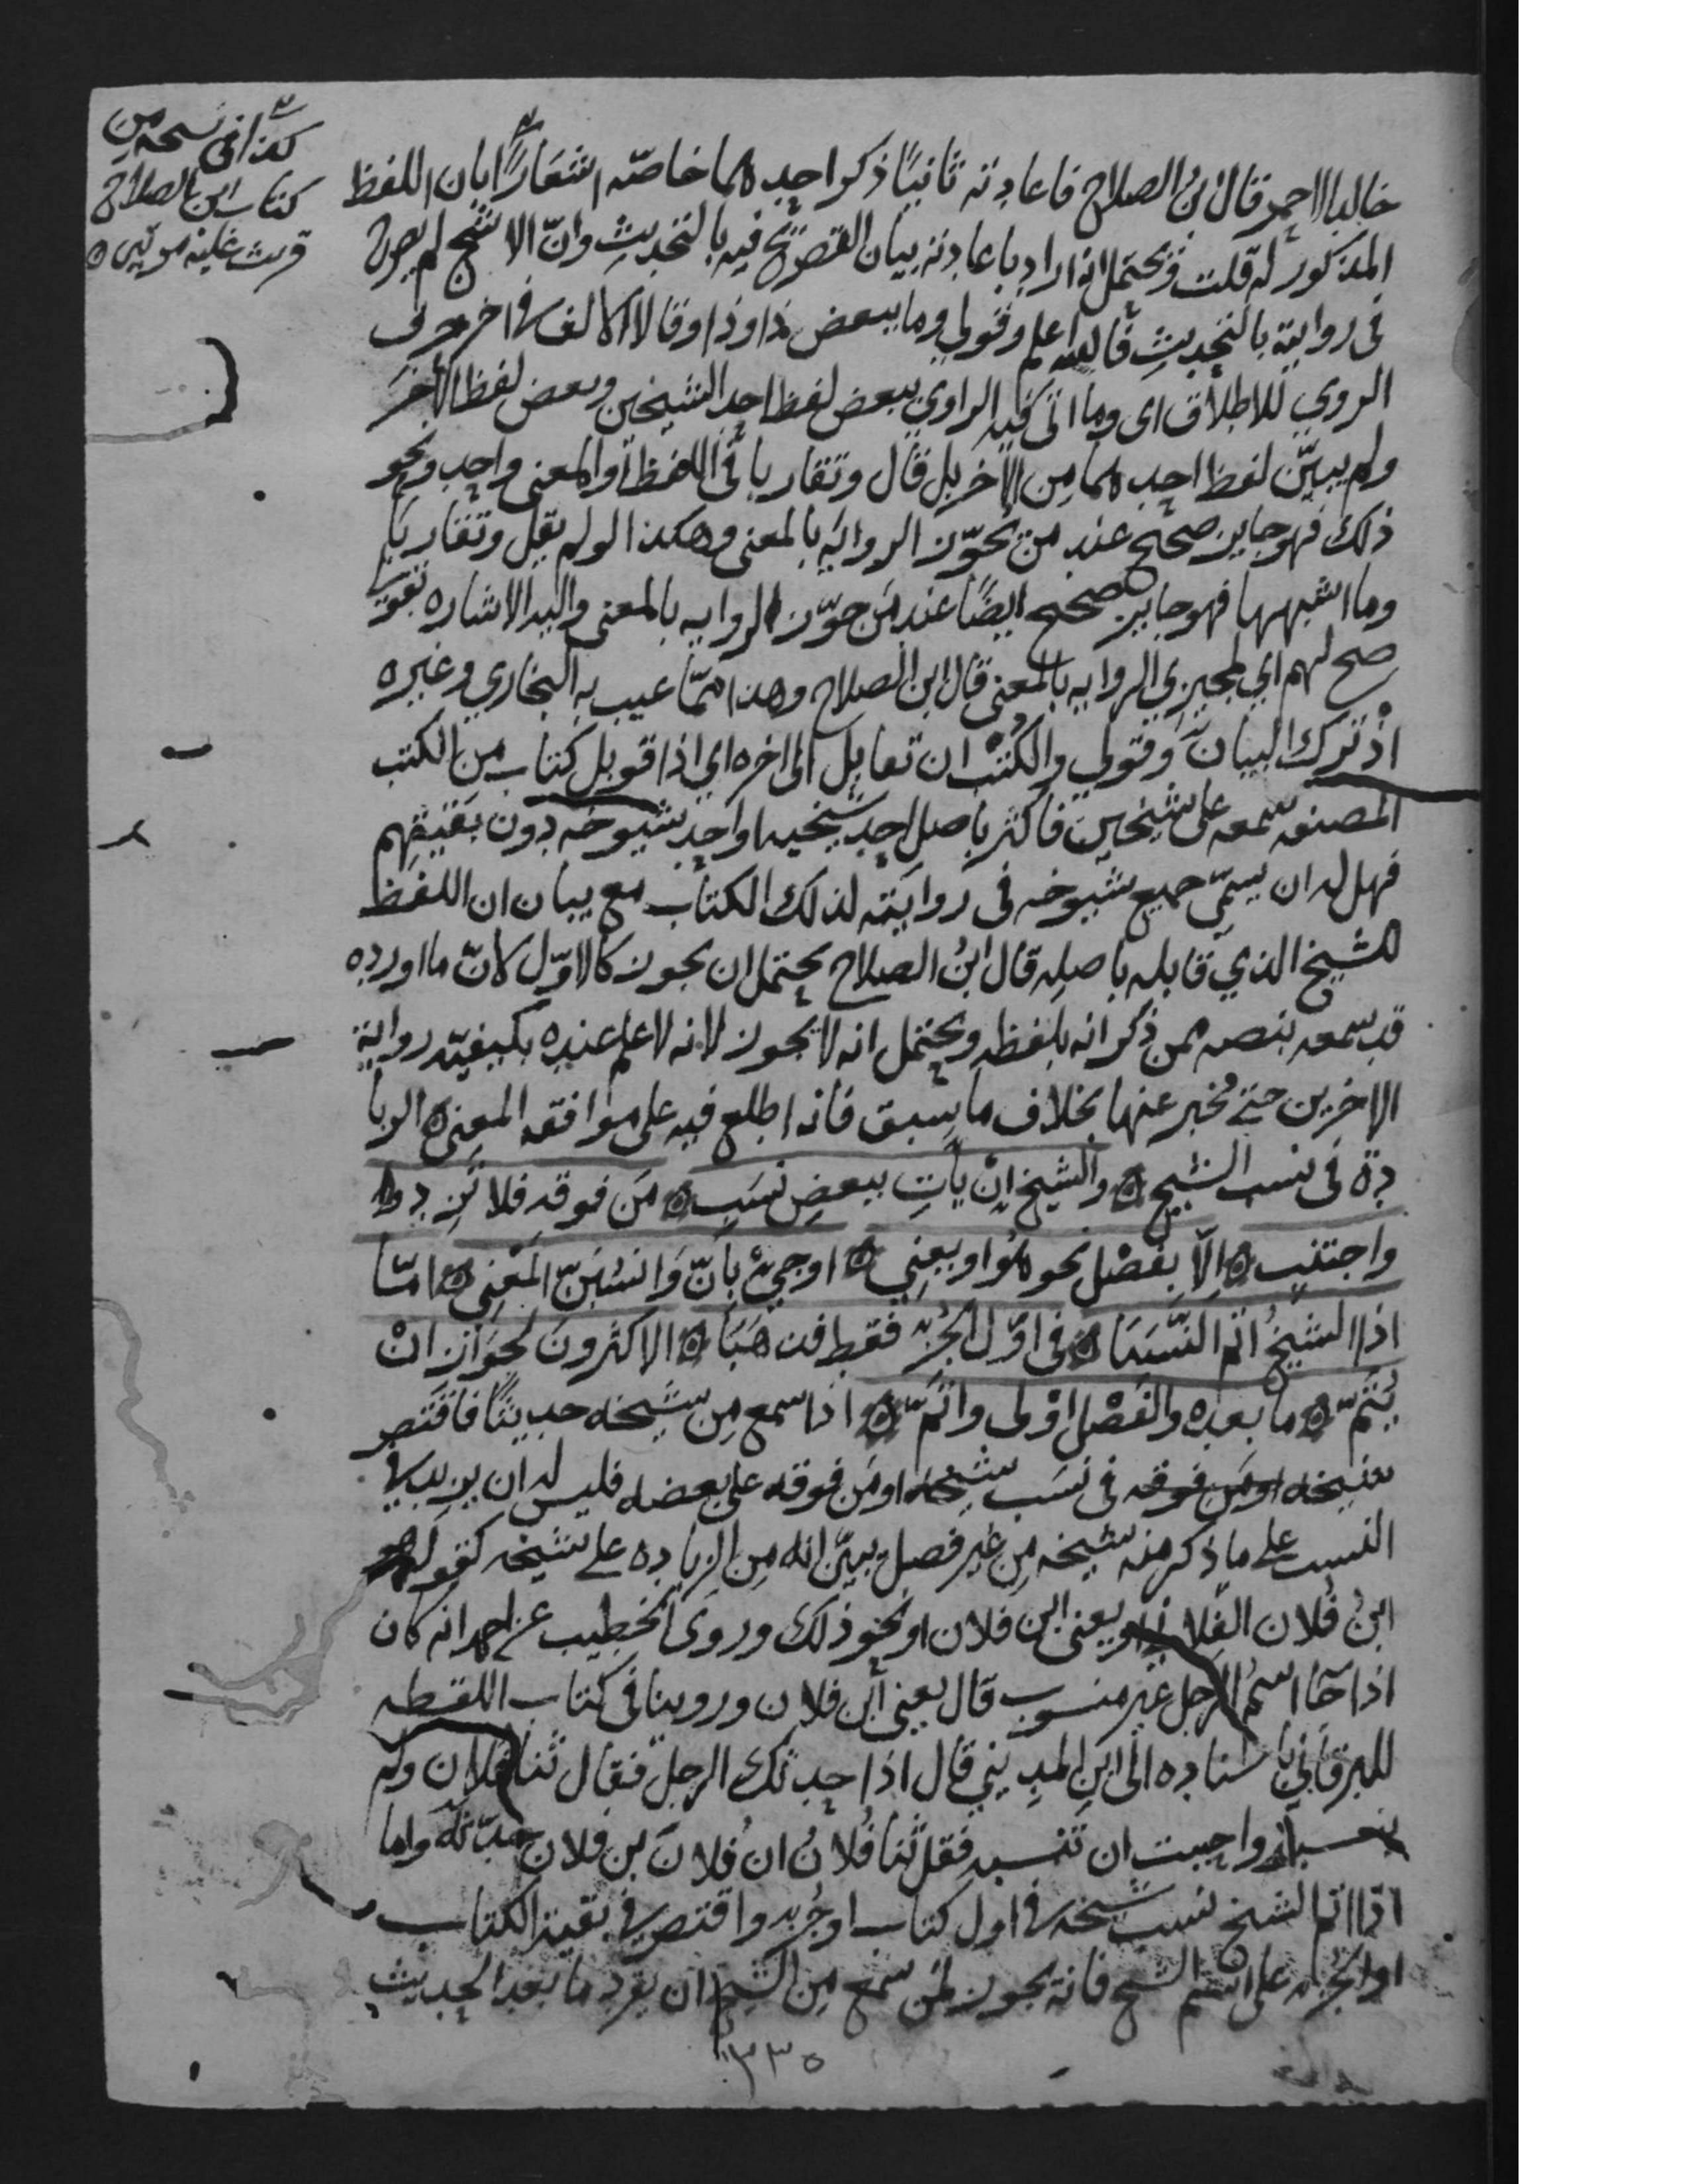 كذا في نسخه من
كتاب ابن الصلاح
قرئت عليه مرتين
خالد الاحمر قال بن الصلاح فاعادته ثانيًا ذكر احدهما خاصّه اشعارًا بان اللفظ
المذكور له قلت ويحتمل انه اراد باعادته بيان التصريح فيه بالتحديثِ وانّ الاشج لم يصرح
في روايته بالتحديثِ فالله اعلم وقولي وما ببعض ذا وذا وقالا الالف في اخر حرف
الروي للاطلاق اى وما اتى فيه الراوي ببعض لفظ احد الشيخين وبعض لفظ الاخر
ولم يبيّن لفظ احدهما من الاخر بل قال وتقاربا في اللفظ او المعنى واحد ونحو
ذلك فهو جايز صحيح عند من يجوّز الروايه بالمعنى وهكذا لو لم يقل وتقاربا
وما اشبهها فهو جايز صحيح ايضًا عند من جوّز الروايه بالمعنى واليه الاشاره بقولي
صح لهم اي لمجيزي الروايه بالمعنى قال ابن الصلاح وهذا ممّا عيب به البخاري وغيره
اذ ترك البيان وقولي والكتْب ان تقابل الى اخره اي اذا قوبل كتاب من الكتب
المصنفه سمعه على شيخين فاكثر باصل احد شيخيه او احد شيوخه دون بقيتهم
فهل له ان يسمّي جميع شيوخه في روايته لذلك الكتاب مع بيان ان اللفظ
للشيخ الذي قابله باصلِه قال ابنُ الصلاح يحتمل ان يجوز كالاوّل لانّ ما اورده
قد سمعه بنصه ممن ذكر انه بلفظه ويحتمل انه لا يجوز لانه لا علم عنده بكيفيّه رواية
الاخرين حتى يُخبر عنها بخلاف ما سبق فانه اطلع فيه على موافقه المعنى ه الزيا
دة في نسب الشيخ ه والشيخ اِنْ ياتِ ببعضِ نسَبِ ه مَن فوقه فلا تَزِد وا
واجتنبِ ه اِلّا بفَصْل نحو هُوَ او يعني ه او جيْ بانّ وَانسُبَنّ المَعْنِي ه امّا
اذا الشيخُ اتم النَّسَبَا ه في اوّل الجُزء فقط فذهَبَا ه الاكثرونَ لجوَاز انْ
يُتَمّ ه ما بعده والفَصْل اوْلى واتَمّ ه اذا سمع مِن شيخه حديثًا فاقتصر
شيخه او مَن فوقه في نسَب شيخه او مَن فوقه على بعضه فليس له ان يزيد في
النسب على ما ذكر منه شيخه مِن غير فصل يبيّن انه مِن الزياده على شيخه كقوله هو
ابنُ فُلان الفلاني او يعني ابن فلان او نحو ذلك وروَى الخطيب عن احمد انه كان
اذا جآ اسمُ الرجل غير منسوب قال يعني ابن فلان وروينا في كتاب اللقطه
للبرقاني باسناده الى ابن المديني قال اذا حدثك الرجل فقال ثنا فلان ولم
ينسبه واحببت ان تنسبه فقل ثنا فُلانُ ان فُلانَ بن فلان حدّثه واما
اذا اتم الشيخ نسب شيخه في اول كتاب او جُزء واقتصر في بقية الكتاب
او الجُزء على اسم الشيخ فانه يجوز لمن سمع مِن الشيخ ان يفرد ما بعد الحديث